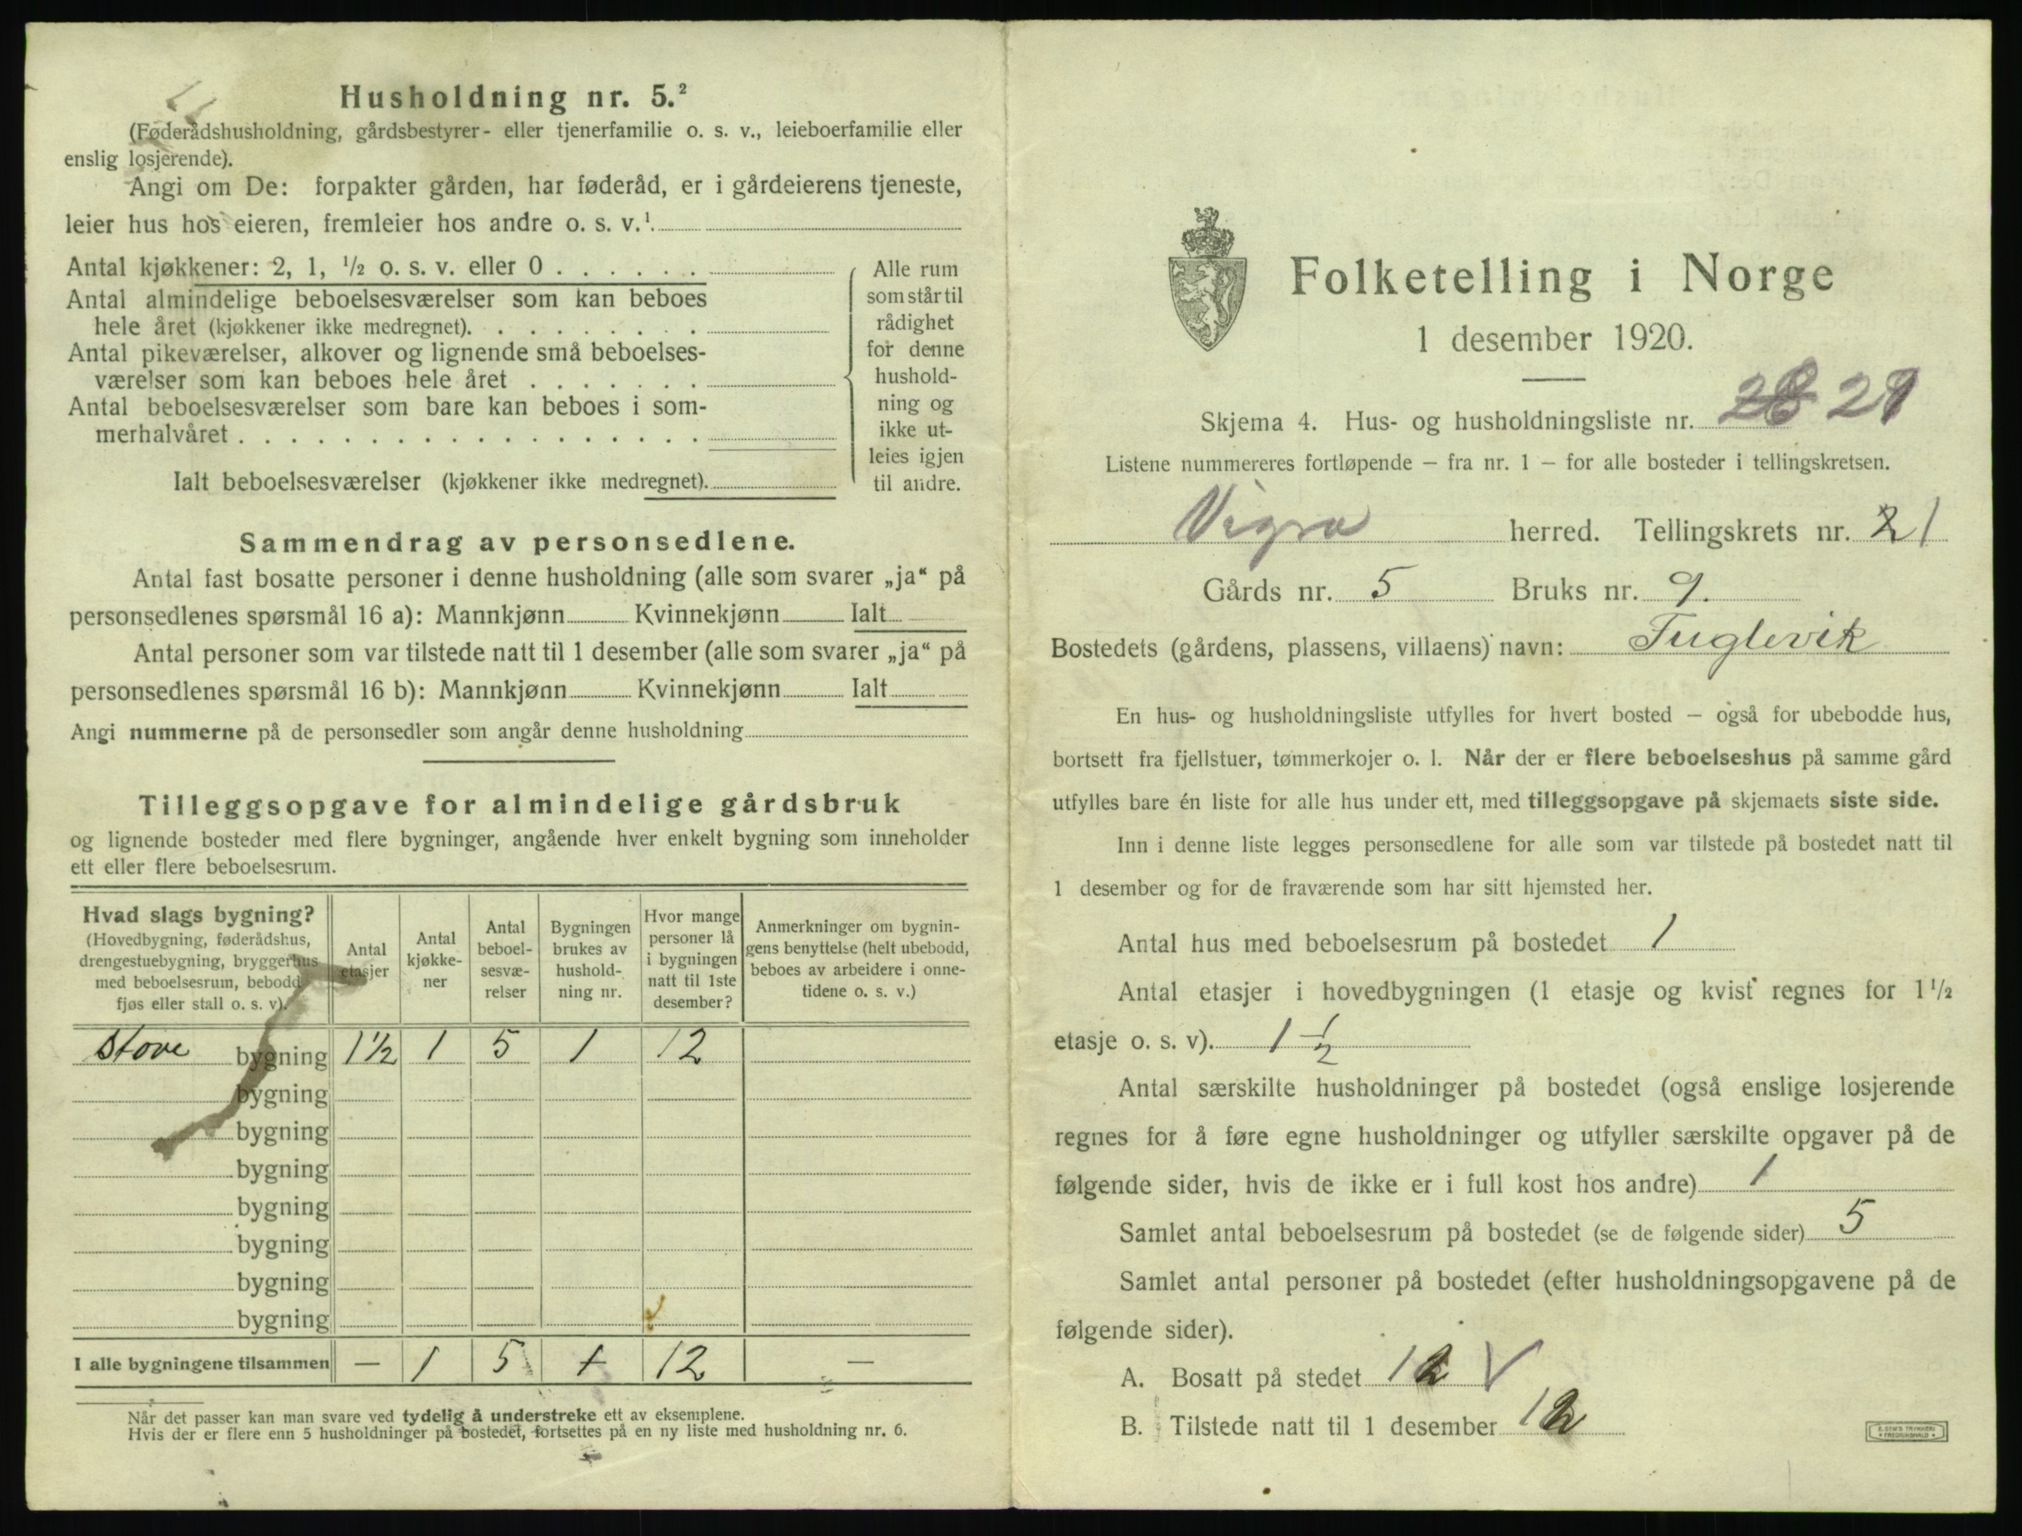 Husholdning nr. 5.²
(Føderådshusholdning, gårdsbestyrer- eller tjenerfamilie o. s. v., leieboerfamilie eller
enslig losjerende).
Angi om De: forpakter gården, har føderåd, er i gårdeierens tjeneste,
leier hus hos eieren, fremleier hos andre o. s. v.¹
Antal kjøkkener: 2, 1, ½ o. s. v. eller 0 . . . . . .
Antal almindelige beboelsesværelser som kan beboes
hele året (kjøkkener ikke medregnet). . . . . . . . .
Antal pikeværelser, alkover og lignende små beboelses-
værelser som kan beboes hele året . . . . . . .
Antal beboelsesværelser som bare kan beboes i som-
merhalvåret . . . . . . . . . . . . . . . . . .
Ialt beboelsesværelser (kjøkkener ikke medregnet).
Alle rum
som står til
rådighet
for denne
hushold-
ning og
ikke ut-
leies igjen
til andre.
Sammendrag av personsedlene.
Antal fast bosatte personer i denne husholdning (alle som svarer „ja“ på
personsedlenes spørsmål 16 a): Mannkjønn Kvinnekjønn Ialt
Antal personer som var tilstede natt til 1 desember (alle som svarer „ja“ på
personsedlenes spørsmål 16 b): Mannkjønn Kvinnekjønn Ialt
Angi nummerne på de personsedler som angår denne husholdning
Tilleggsopgave for almindelige gårdsbruk
og lignende bosteder med flere bygninger, angående hver enkelt bygning som inneholder
ett eller flere beboelsesrum.
Hvad slags bygning?
(Hovedbygning, føderådshus,
drengestuebygning, bryggerhus
med beboelsesrum, bebodd
fjøs eller stall o. s. v).
Antal
etasjer
Antal
kjøkke-
ner
Antal
beboel-
sesvæ-
relser
Bygningen
brukes av
hushold-
ning nr.
Hvor mange
personer lå
i bygningen
natt til 1ste
desember?
Anmerkninger om bygnin-
gens benyttelse (helt ubebodd,
beboes av arbeidere i onne-
tidene o. s. v.)
Stove bygning 1½ 1 5 1 12
bygning
bygning
bygning
bygning
bygning
bygning
bygning
I alle bygningene tilsammen — 1 5 1 12 —
Når det passer kan man svare ved tydelig å understreke ett av eksemplene.
Hvis der er flere enn 5 husholdninger på bostedet, fortsettes på en ny liste med husholdning nr. 6.
Folketelling i Norge
1 desember 1920.
Skjema 4. Hus- og husholdningsliste nr. 28 21
Listene nummereres fortløpende — fra nr. 1 — for alle bosteder i tellingskretsen.
Vigra herred. Tellingskrets nr. 21
Gårds nr. 5 Bruks nr. 9.
Bostedets (gårdens, plassens, villaens) navn: Fuglevik
En hus- og husholdningsliste utfylles for hvert bosted — også for ubebodde hus,
bortsett fra fjellstuer, tømmerkojer o. l. Når der er flere beboelseshus på samme gård
utfylles bare én liste for alle hus under ett, med tilleggsopgave på skjemaets siste side.
Inn i denne liste legges personsedlene for alle som var tilstede på bostedet natt til
1 desember og for de fraværende som har sitt hjemsted her.
Antal hus med beboelsesrum på bostedet 1
Antal etasjer i hovedbygningen (1 etasje og kvist regnes for 1½
etasje o. s. v). 1½
Antal særskilte husholdninger på bostedet (også enslige losjerende
regnes for å føre egne husholdninger og utfyller særskilte opgaver på de
følgende sider, hvis de ikke er i full kost hos andre) 1
Samlet antal beboelsesrum på bostedet (se de følgende sider) 5
Samlet antal personer på bostedet (efter husholdningsopgavene på de
følgende sider).
A. Bosatt på stedet 12 V
B. Tilstede natt til 1 desember 12